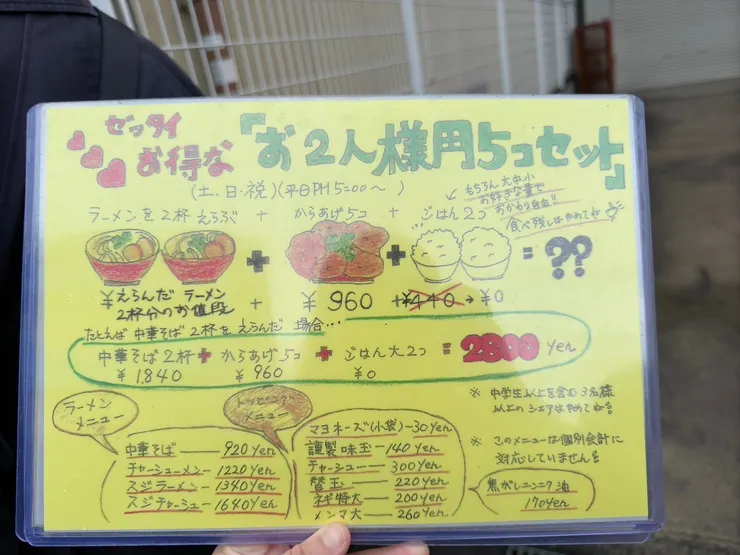 ゼッタイ
お得な
『お2人様用5コセット』
(土、日・祝)(平日PM5:00〜 )
もちろん大中小
お好きな量で
おかわり自由!!
食べ残しはやめてね
ラーメンを2杯えらぶ + からあげ5コ + ごはん2コ
+ + = ??
¥えらんだラーメン
2杯分のお値段 + ¥960 +¥440→¥0
たとえば 中華そば2杯をえらんだ場合…
中華そば2杯+からあげ5コ+ごはん大2コ=2800yen
¥1.840 ¥960 ¥0
ラーメン
メニュー
中華そば―920yen
チャーシューメン―1220yen
スジラーメン―1340yen
スジチャーシュー―1640yen
トッピング
メニュー
マヨネーズ(小袋)―30yen
謹製味玉―140yen
チャーシュー―300yen
替玉―220yen
ネギ特大―200yen
メンマ大―260yen
※中学生以上を含む3名様
以上のシェアはやめてね
※このメニューは個別会計に
対応していません
焦がしニンニク油
170yen